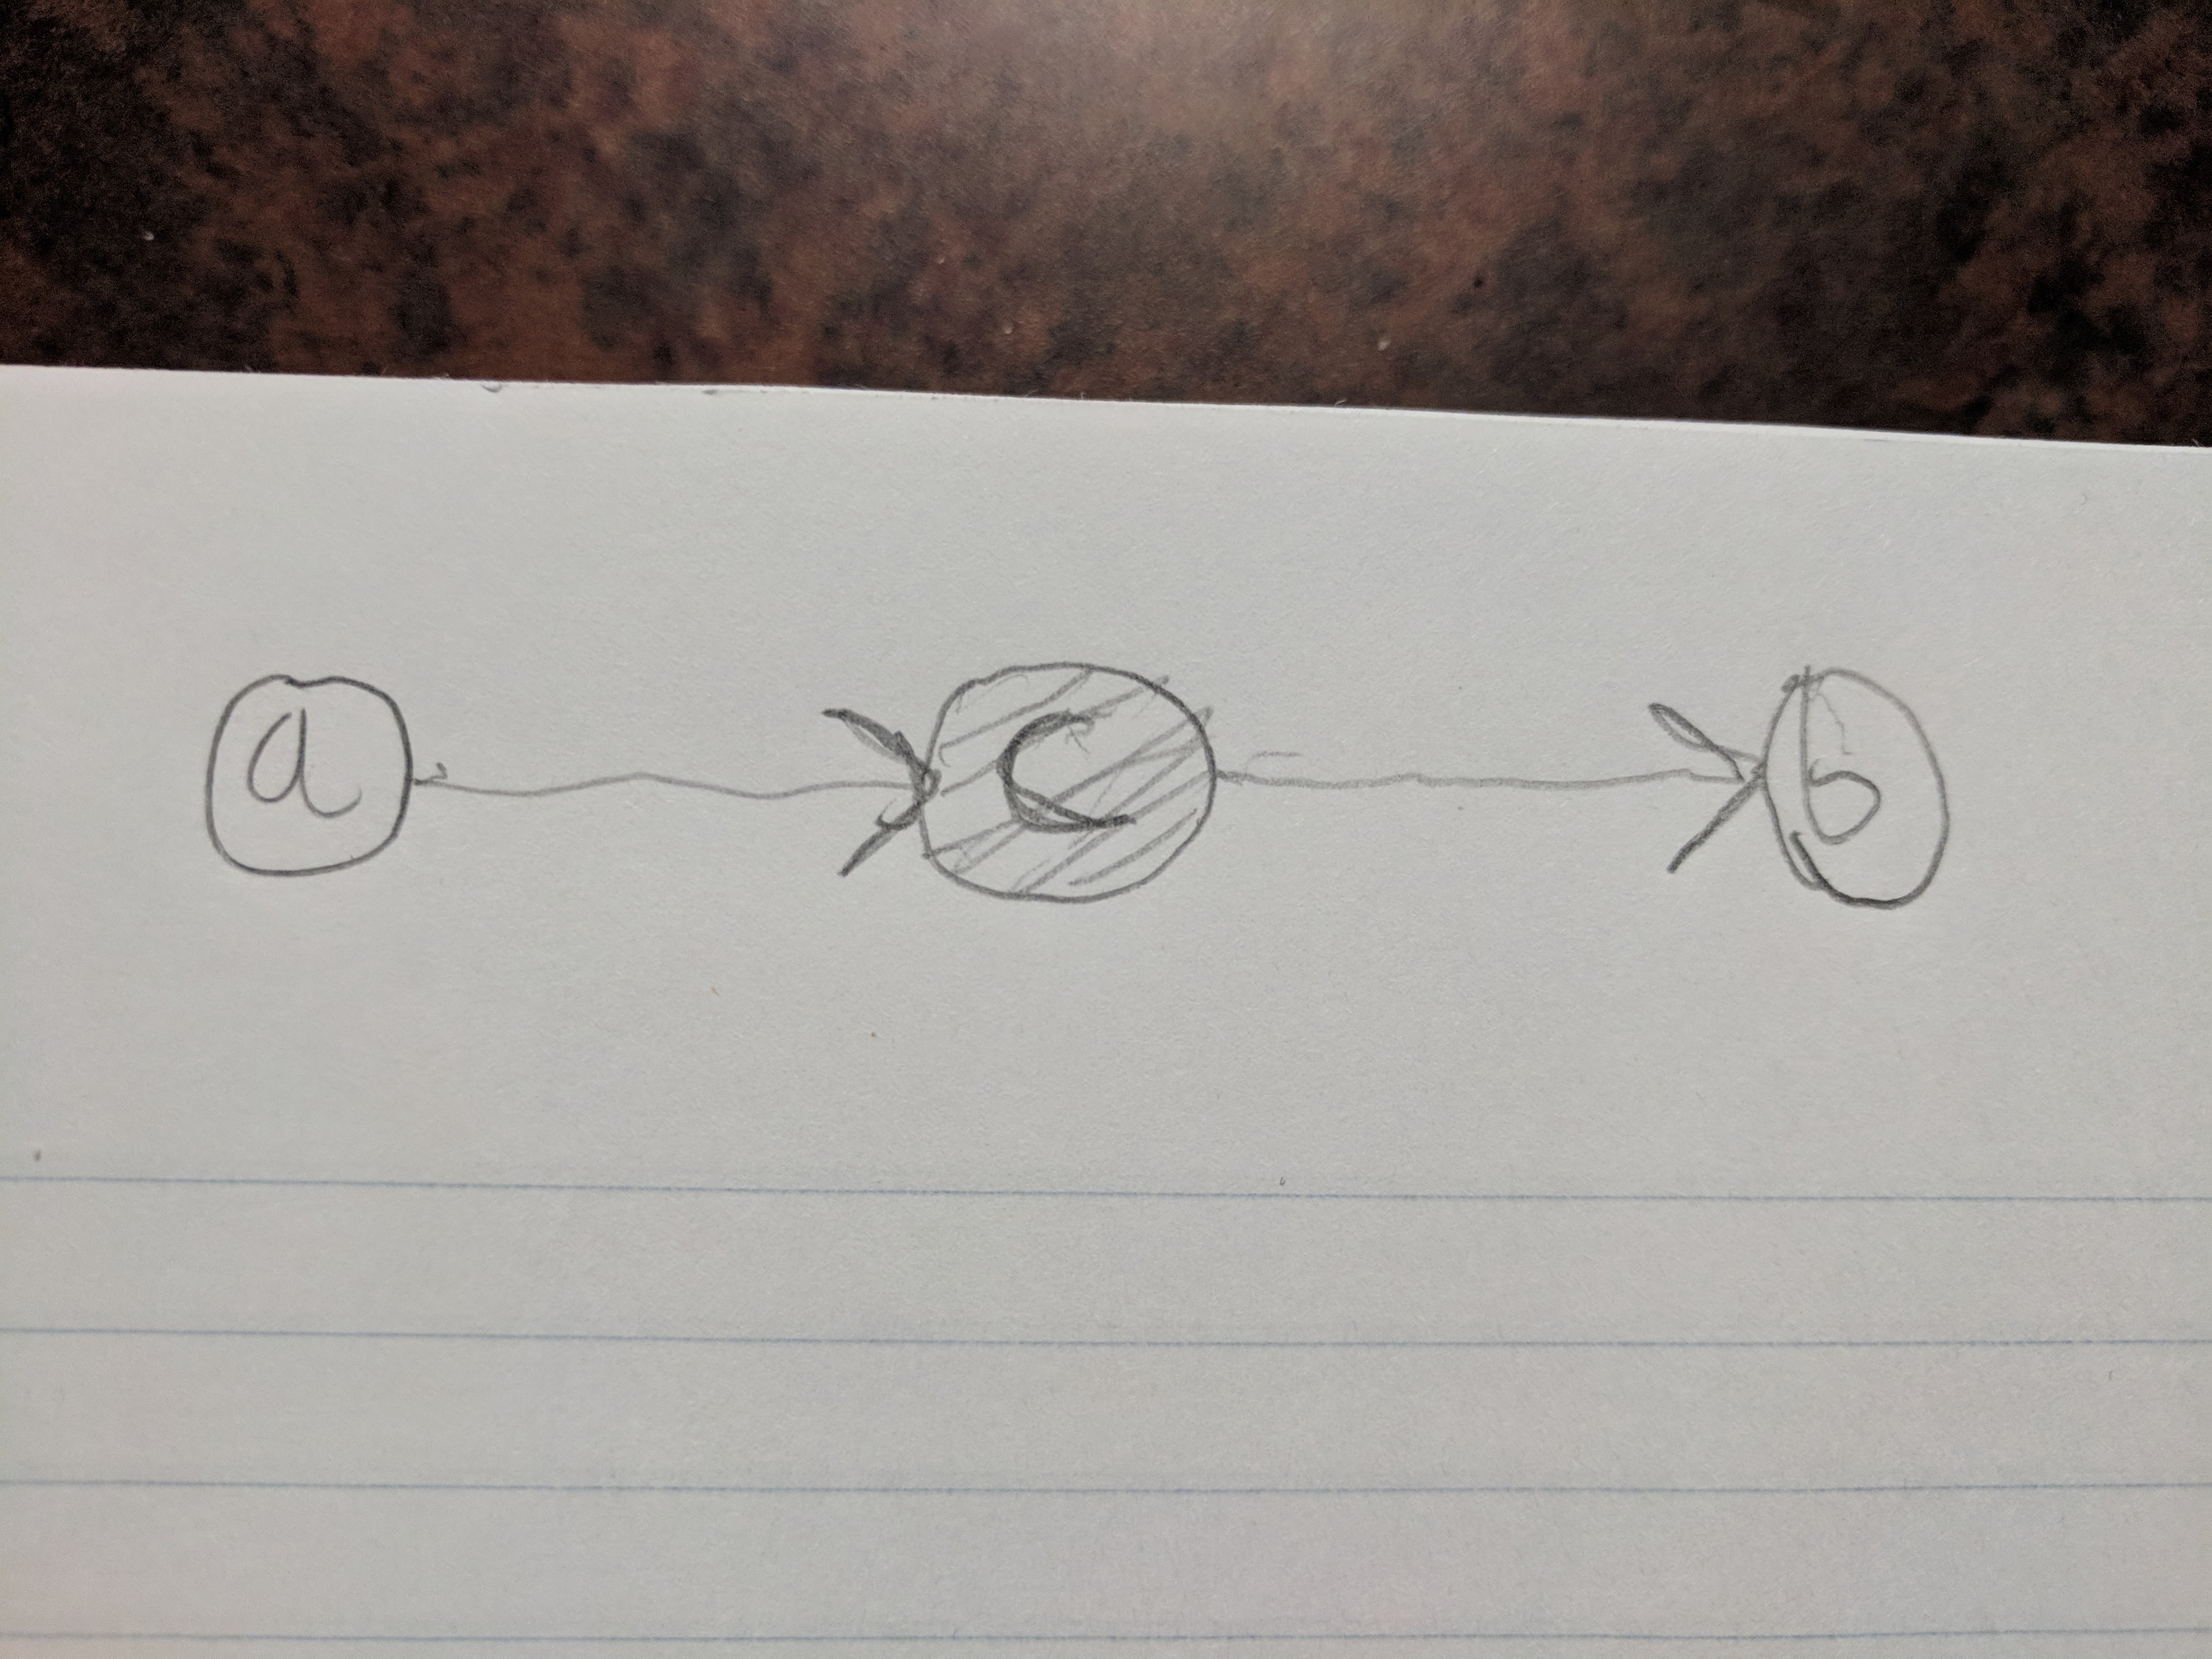 a c b